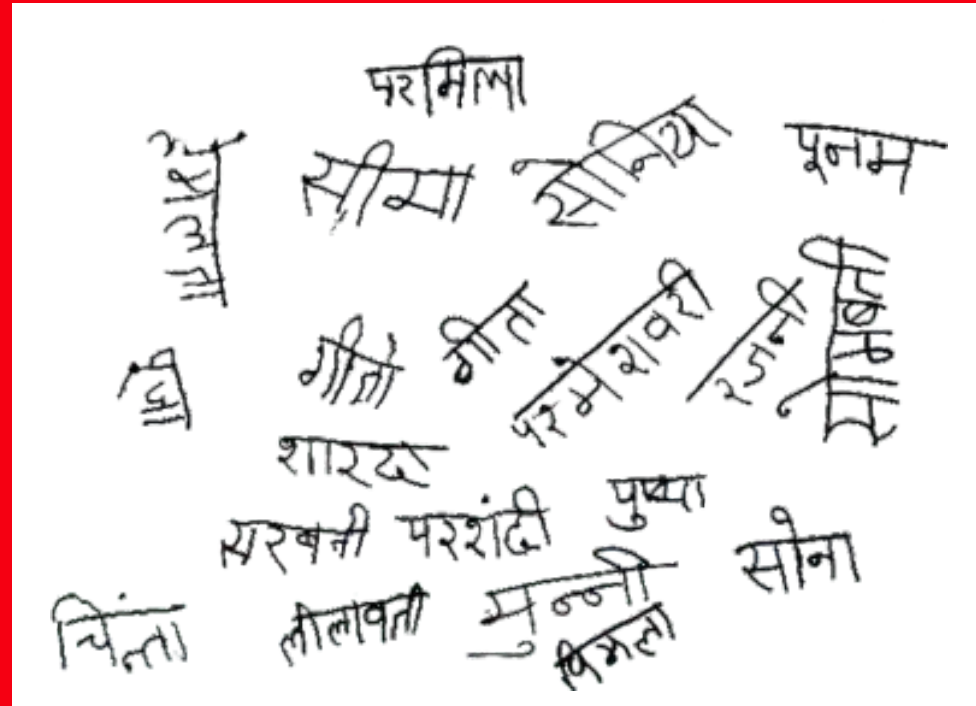 परमिला
सीमा
सोनिया
पूनम
गीता
गीता
परमेशवरी
रजनी
शारदा
सरबती
परशंदी
पुष्पा
सोना
चिंन्ता
लीलावती
मुन्नी
विमला